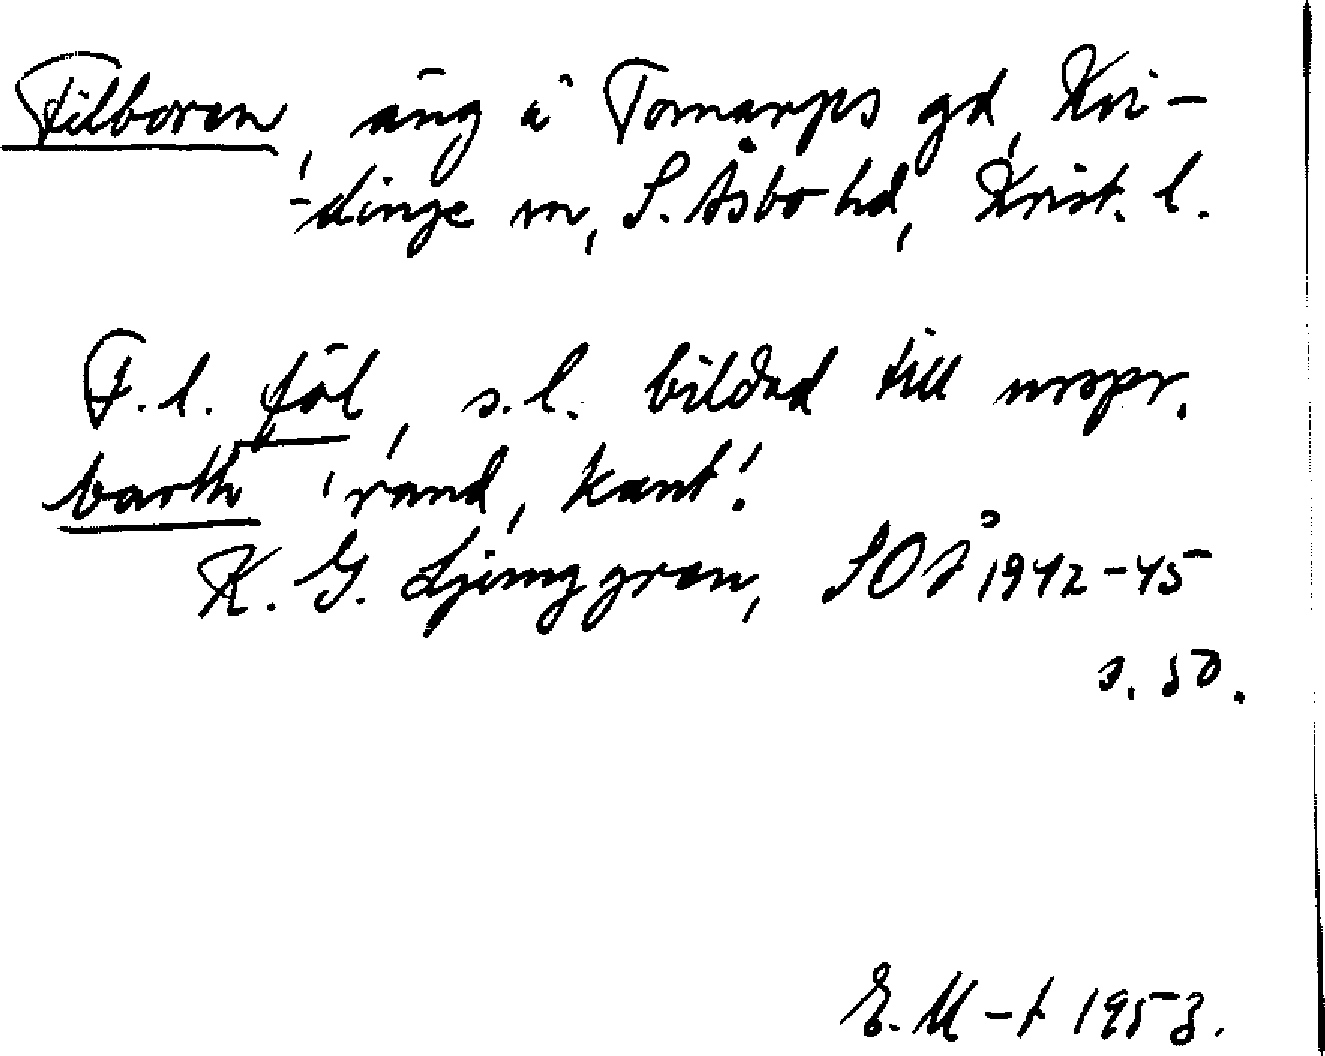 Filboren, äng å Tomarps gd, Kvi-
-dinge sn, S. Åsbo hd, Krist. l.
F. l. föl, s. l. bildad till urspr.
barth 'rand, kant'.
K. G. Ljunggren, SOÅ 1942-45
s. 50.
E. M-t 1953.